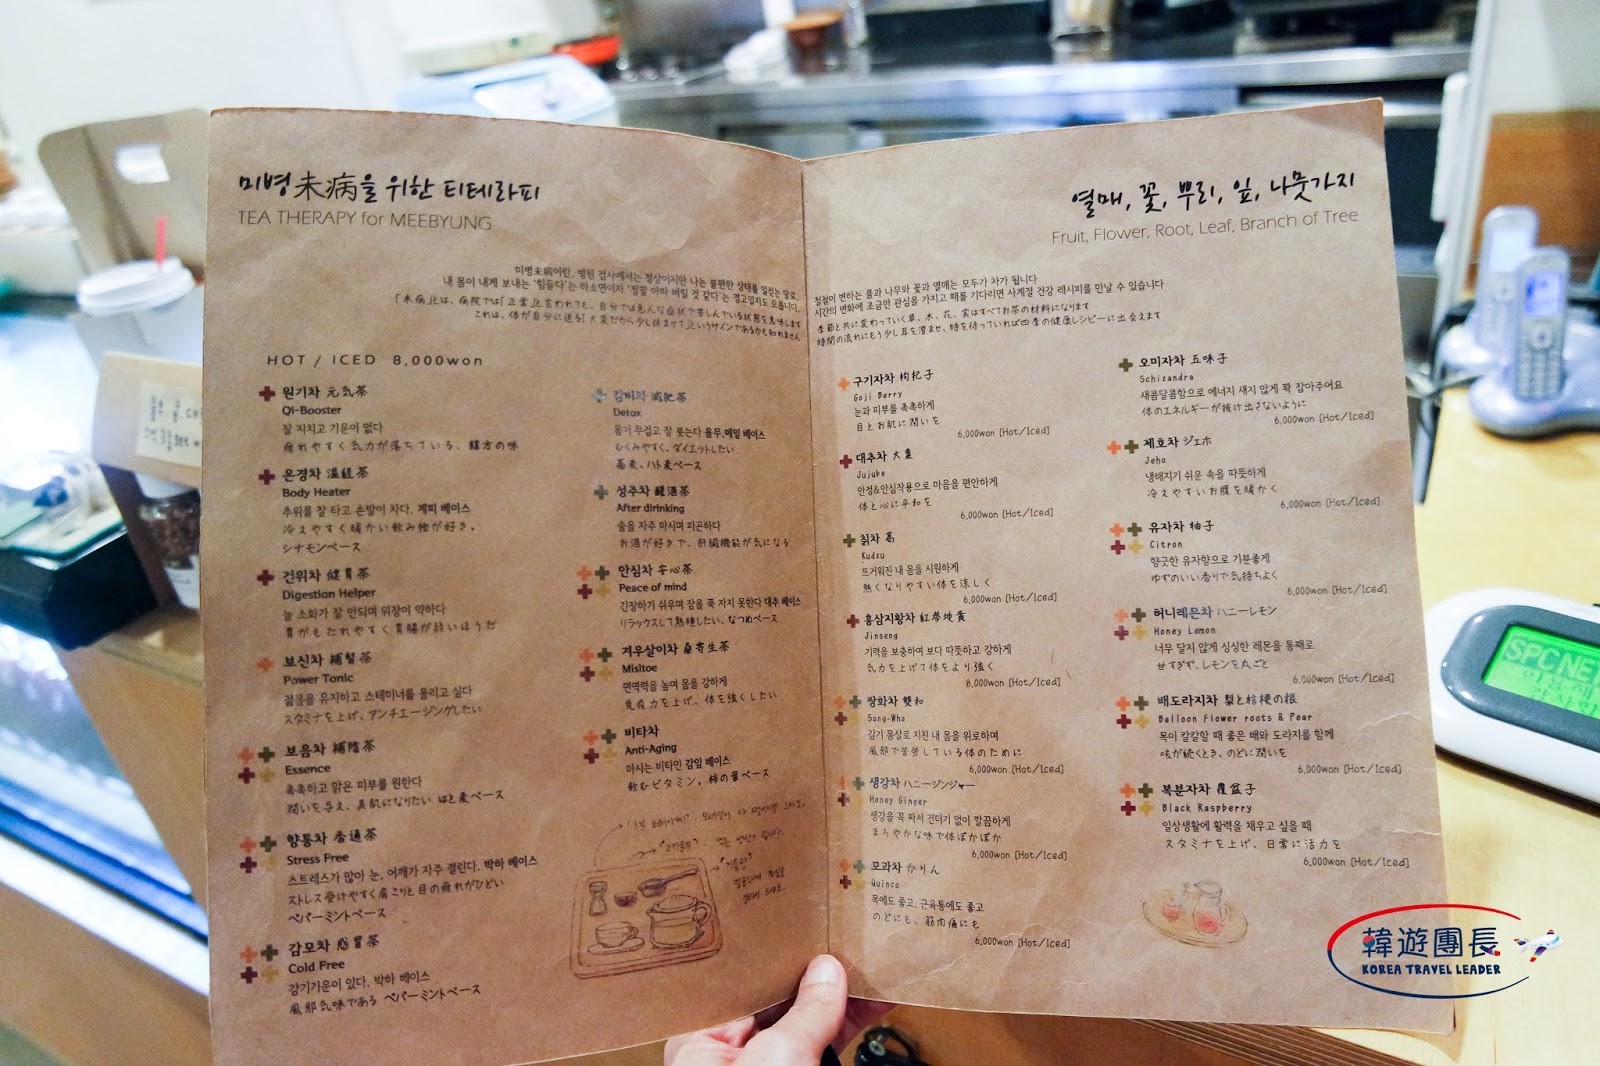 미병未病을 위한 티테라피
TEA THERAPY for MEEBYUNG
미병未病이란, 병원 검사에서는 정상이지만 나는 불편한 상태를 일컫는 말로,
내 몸이 내게 보내는 '힘들다'는 하소연이자 '정말 아파 버릴 것 같다'는 경고일지도 모릅니다.
「未病」とは、病院では「正常」と言われても、自分では色んな症状で苦しんでいる状態を意味します
これは、体が自分に送る「大変だから少し休ませて」というサインであるかも知れません
HOT / ICED 8,000won
원기차 元気茶
Qi-Booster
잘 지치고 기운이 없다
疲れやすく気力が落ちている、韓方の味
온경차 温経茶
Body Heater
추위를 잘 타고 손발이 차다. 계피 베이스
冷えやすく暖かい飲み物が好き。
シナモンベース
건위차 健胃茶
Digestion Helper
늘 소화가 잘 안되며 위장이 약하다
胃がもたれやすく胃腸が弱いほうだ
보신차 補腎茶
Power Tonic
젊음을 유지하고 스테미너를 올리고 싶다
スタミナを上げ、アンチエージングしたい
보음차 補陰茶
Essence
촉촉하고 맑은 피부를 원한다
潤いを与え、美肌になりたい はと麦ベース
향통차 香通茶
Stress Free
스트레스가 많아 눈, 어깨가 자주 결린다. 박하 베이스
ストレス受けやすく肩こりと目の疲れがひどい
ペパーミントベース
감모차 感冒茶
Cold Free
감기기운이 있다. 박하 베이스
風邪気味である ペパーミントベース
감비차 減肥茶
Detox
몸이 무겁고 잘 붓는다 율무,메밀 베이스
むくみやすく、ダイエットしたい
蕎麦、ハト麦ベース
성주차 醒酒茶
After dirinking
술을 자주 마시며 피곤하다
お酒が好きで、肝臓機能が気になる
안심차 安心茶
Peace of mind
긴장하기 쉬우며 잠을 푹 자지 못한다 대추 베이스
リラックスして熟睡したい、なつめベース
겨우살이차 桑寄生茶
Misltoe
면역력을 높여 몸을 강하게
免疫力を上げ、体を強くしたい
비타차
Anti-Aging
마시는 비타민 감잎 베이스
飲むビタミン。柿の葉ベース
열매, 꽃, 뿌리, 잎, 나뭇가지
Fruit, Flower, Root, Leaf, Branch of Tree
철철이 변하는 풀과 나무와 꽃과 열매는 모두가 차가 됩니다
시간의 변화에 조금만 관심을 가지고 때를 기다리면 사계절 건강 레시피를 만날 수 있습니다
季節と共に変わっていく草、木、花、実はすべてお茶の材料になります
時間の流れにもう少し耳を澄ませ、時を待っていれば四季の健康レシピーに出会えます
구기자차 枸杞子
Goji Berry
눈과 피부를 촉촉하게
目とお肌に潤いを
6,000won [Hot/Iced]
대추차 大棗
Jujube
안정&안심작용으로 마음을 편안하게
体と心に平和を
6,000won [Hot/Iced]
칡차 葛
Kudzu
뜨거워진 내 몸을 시원하게
熱くなりやすい体を涼しく
6,000won [Hot/Iced]
홍삼지황차 紅参地黄
Jinseng
기력을 보충하여 보다 따뜻하고 강하게
気力を上げて体をより強く
8,000won [Hot/Iced]
쌍화차 雙和
Sang-Wha
감기 몸살로 지친 내 몸을 위로하며
風邪で苦労している体のために
6,000won [Hot/Iced]
생강차 ハニージンジャー
Honey Ginger
생강을 꼭 짜서 건더기 없이 깔끔하게
まろやかな味で体ぽかぽか
6,000won [Hot/Iced]
모과차 かりん
Quince
목에도 좋고, 근육통에도 좋고
のどにも、筋肉痛にも
6,000won [Hot/Iced]
오미자차 五味子
Schizandra
새콤달콤함으로 에너지 새지 않게 꽉 잡아주어요
体のエネルギーが抜け出さないように
6,000won [Hot/Iced]
제호차 ジェホ
Jeho
냉해지기 쉬운 속을 따뜻하게
冷えやすいお腹を暖かく
6,000won [Hot/Iced]
유자차 柚子
Citron
향긋한 유자향으로 기분좋게
ゆずのいい香りで気持ちよく
6,000won [Hot/Iced]
허니레몬차 ハニーレモン
Honey Lemon
너무 달지 않게 싱싱한 레몬을 통째로
甘すぎず、レモンを丸ごと
6,000won [Hot/Iced]
배도라지차 梨と桔梗の根
Balloon Flower roots & Pear
목이 칼칼할 때 좋은 배와 도라지를 함께
咳が続くとき、のどに潤いを
6,000won [Hot/Iced]
복분자차 覆盆子
Black Raspberry
일상생활에 활력을 채우고 싶을 때
スタミナを上げ、日常に活力を
6,000won [Hot/Iced]
SPCNET
韓遊團長
KOREA TRAVEL LEADER